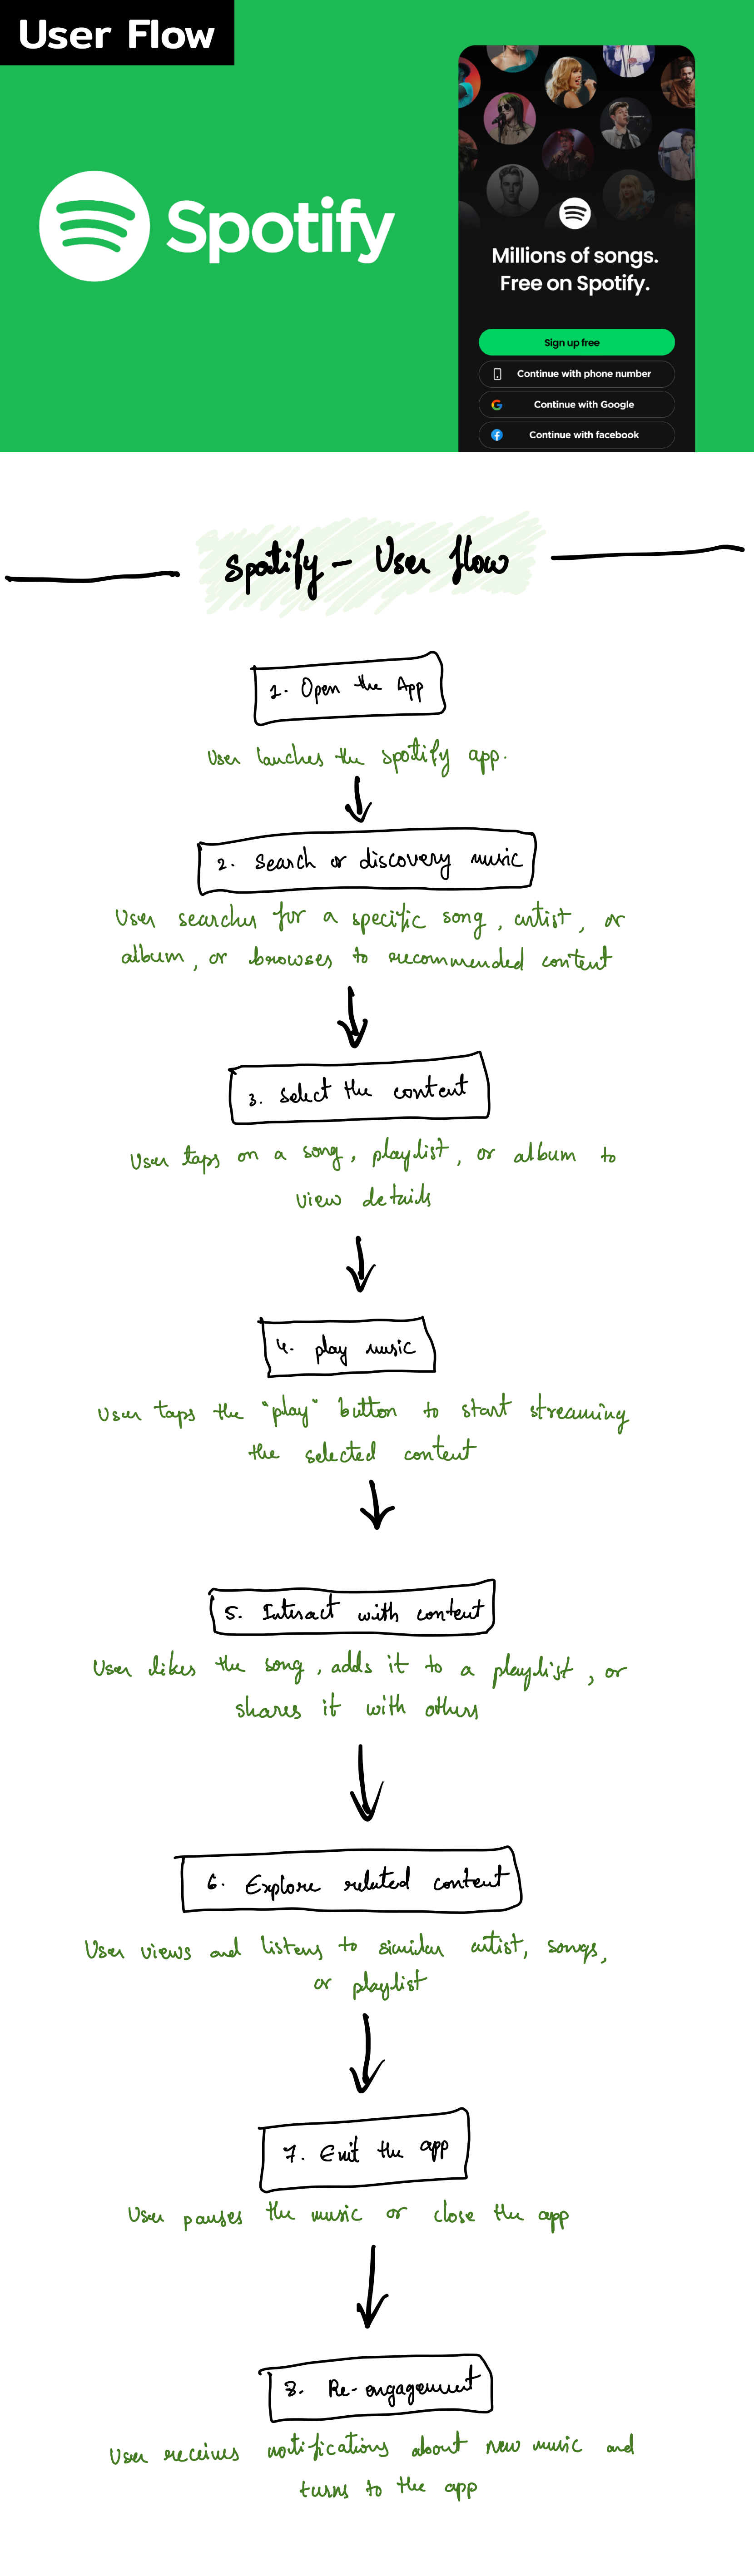 User Flow
Spotify
Millions of songs.
Free on Spotify.
Sign up free
Continue with phone number
Continue with Google
Continue with facebook
Spotify - User flow
1. Open the App
User lanches the spotify app.
2. Search or discovery music
User searches for a specific song, artist, or
album, or browses to recommended content
3. Select the content
User taps on a song, playlist, or album to
view details
4. play music
User taps the "play" button to start streaming
the selected content
5. Interact with content
User likes the song, adds it to a playlist, or
shares it with others
6. Explore related content
User views and listens to similar artist, songs,
or playlist
7. Exit the app
User pauses the music or close the app
8. Re-engagement
User receives notifications about new music and
turns to the app